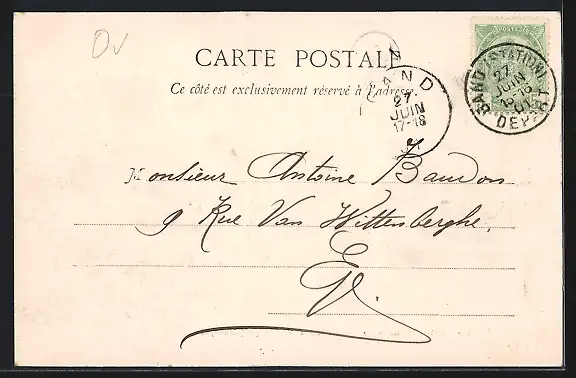 Ov
CARTE POSTALE
Ce côté est exclusivement réservé à l'adresse.
POSTES
GAND (STATION)
27
JUIN
DEPART
GAND
27
JUIN
17-18
Monsieur Antoine Baudon
9 Rue Van Wittenberghe,
E/V.